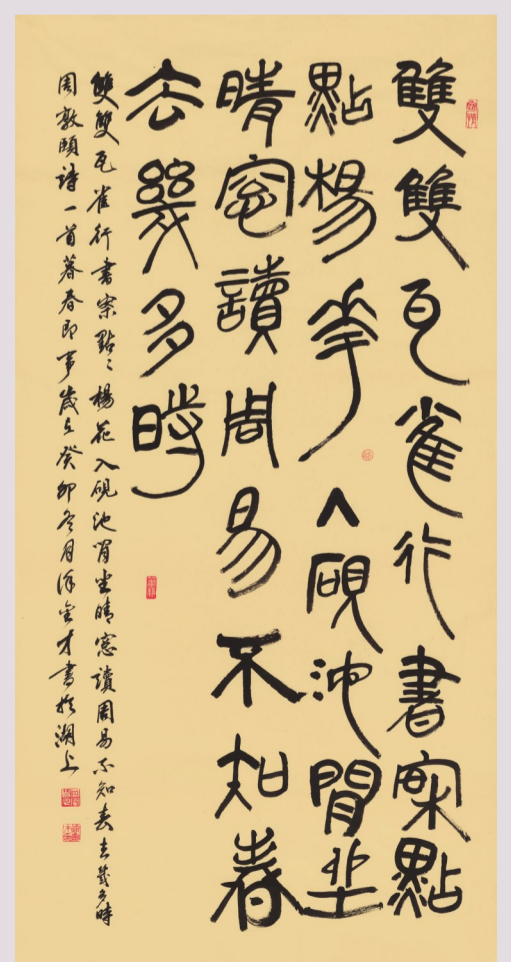 雙雙瓦雀行書案點
點楊花入硯池閒坐
晴窓讀周易不知春
去幾多時
雙雙瓦雀行書案點〻楊花入硯池閒坐晴窓讀周易不知春去幾多時
周敦頤詩一首暮春即事歲在癸卯冬月徐金才書於湖上